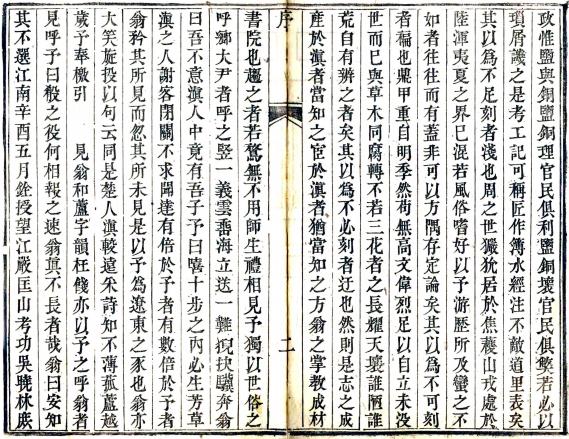 政惟鹽與銅鹽銅理官民俱利鹽銅壞官民俱斃若必以
瑣屑譏之是考工記可稱匠作簿水經注不敵道里表矣
其以為不足刻者淺也周之世玁狁居於焦穫山戎處於
陸渾夷夏之界已混若風俗嗜好以予游歷所及蠻之不
如者往往而有蓋非可以方隅存定論矣其以為不可刻
者褊也鼎甲重自明季然苟無高文偉烈足以自立未沒
世而已與草木同腐轉不若三花者之長耀天壤誰陋誰
荒自有辨之者矣其以為不必刻者迂也然則是志之成
產於滇者當知之宦於滇者猶當知之方翁之掌教成材
序 二
書院也趨之者若鶩無不用師生禮相見予獨以世俗之
呼鄉大尹者呼之豎一義雲垂海立送一難猊抉驥奔翁
曰吾不意滇人中竟有吾子予曰嘻十步之內必生芳草
滇之人謝客閉關不求聞達有倍於予者有數倍於予者
翁矜其所見而忽其所未見是以予為遼東之豕也翁亦
大笑旋投以句云同是楚人滇較遠采詩知不薄菰蘆越
歲予奉檄引 見翁和蘆字韻枉餞亦以予之呼翁者
見呼予曰殽之役何相報之速翁真不長者哉翁曰安知
其不選江南辛酉五月銓授望江嚴匡山考功吳曉林庶